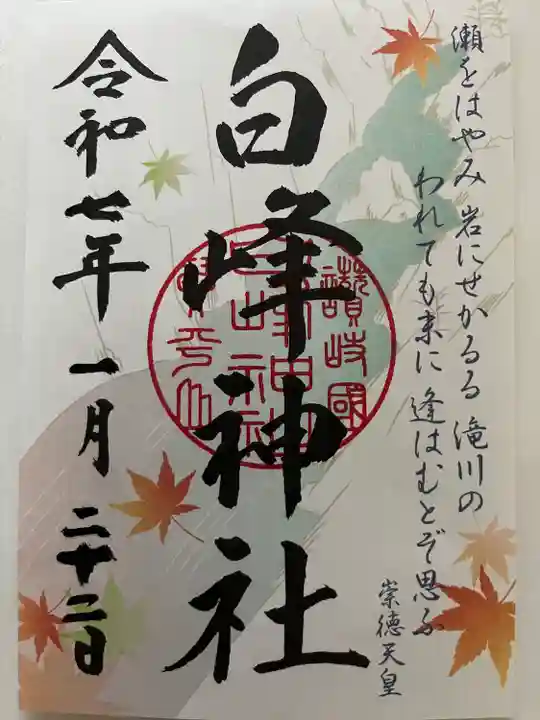 瀬をはやみ 岩にせかるる 滝川の
われても末に 逢はむとぞ思ふ
崇徳天皇
白峰神社
讃岐國
令和七年一月二十二日